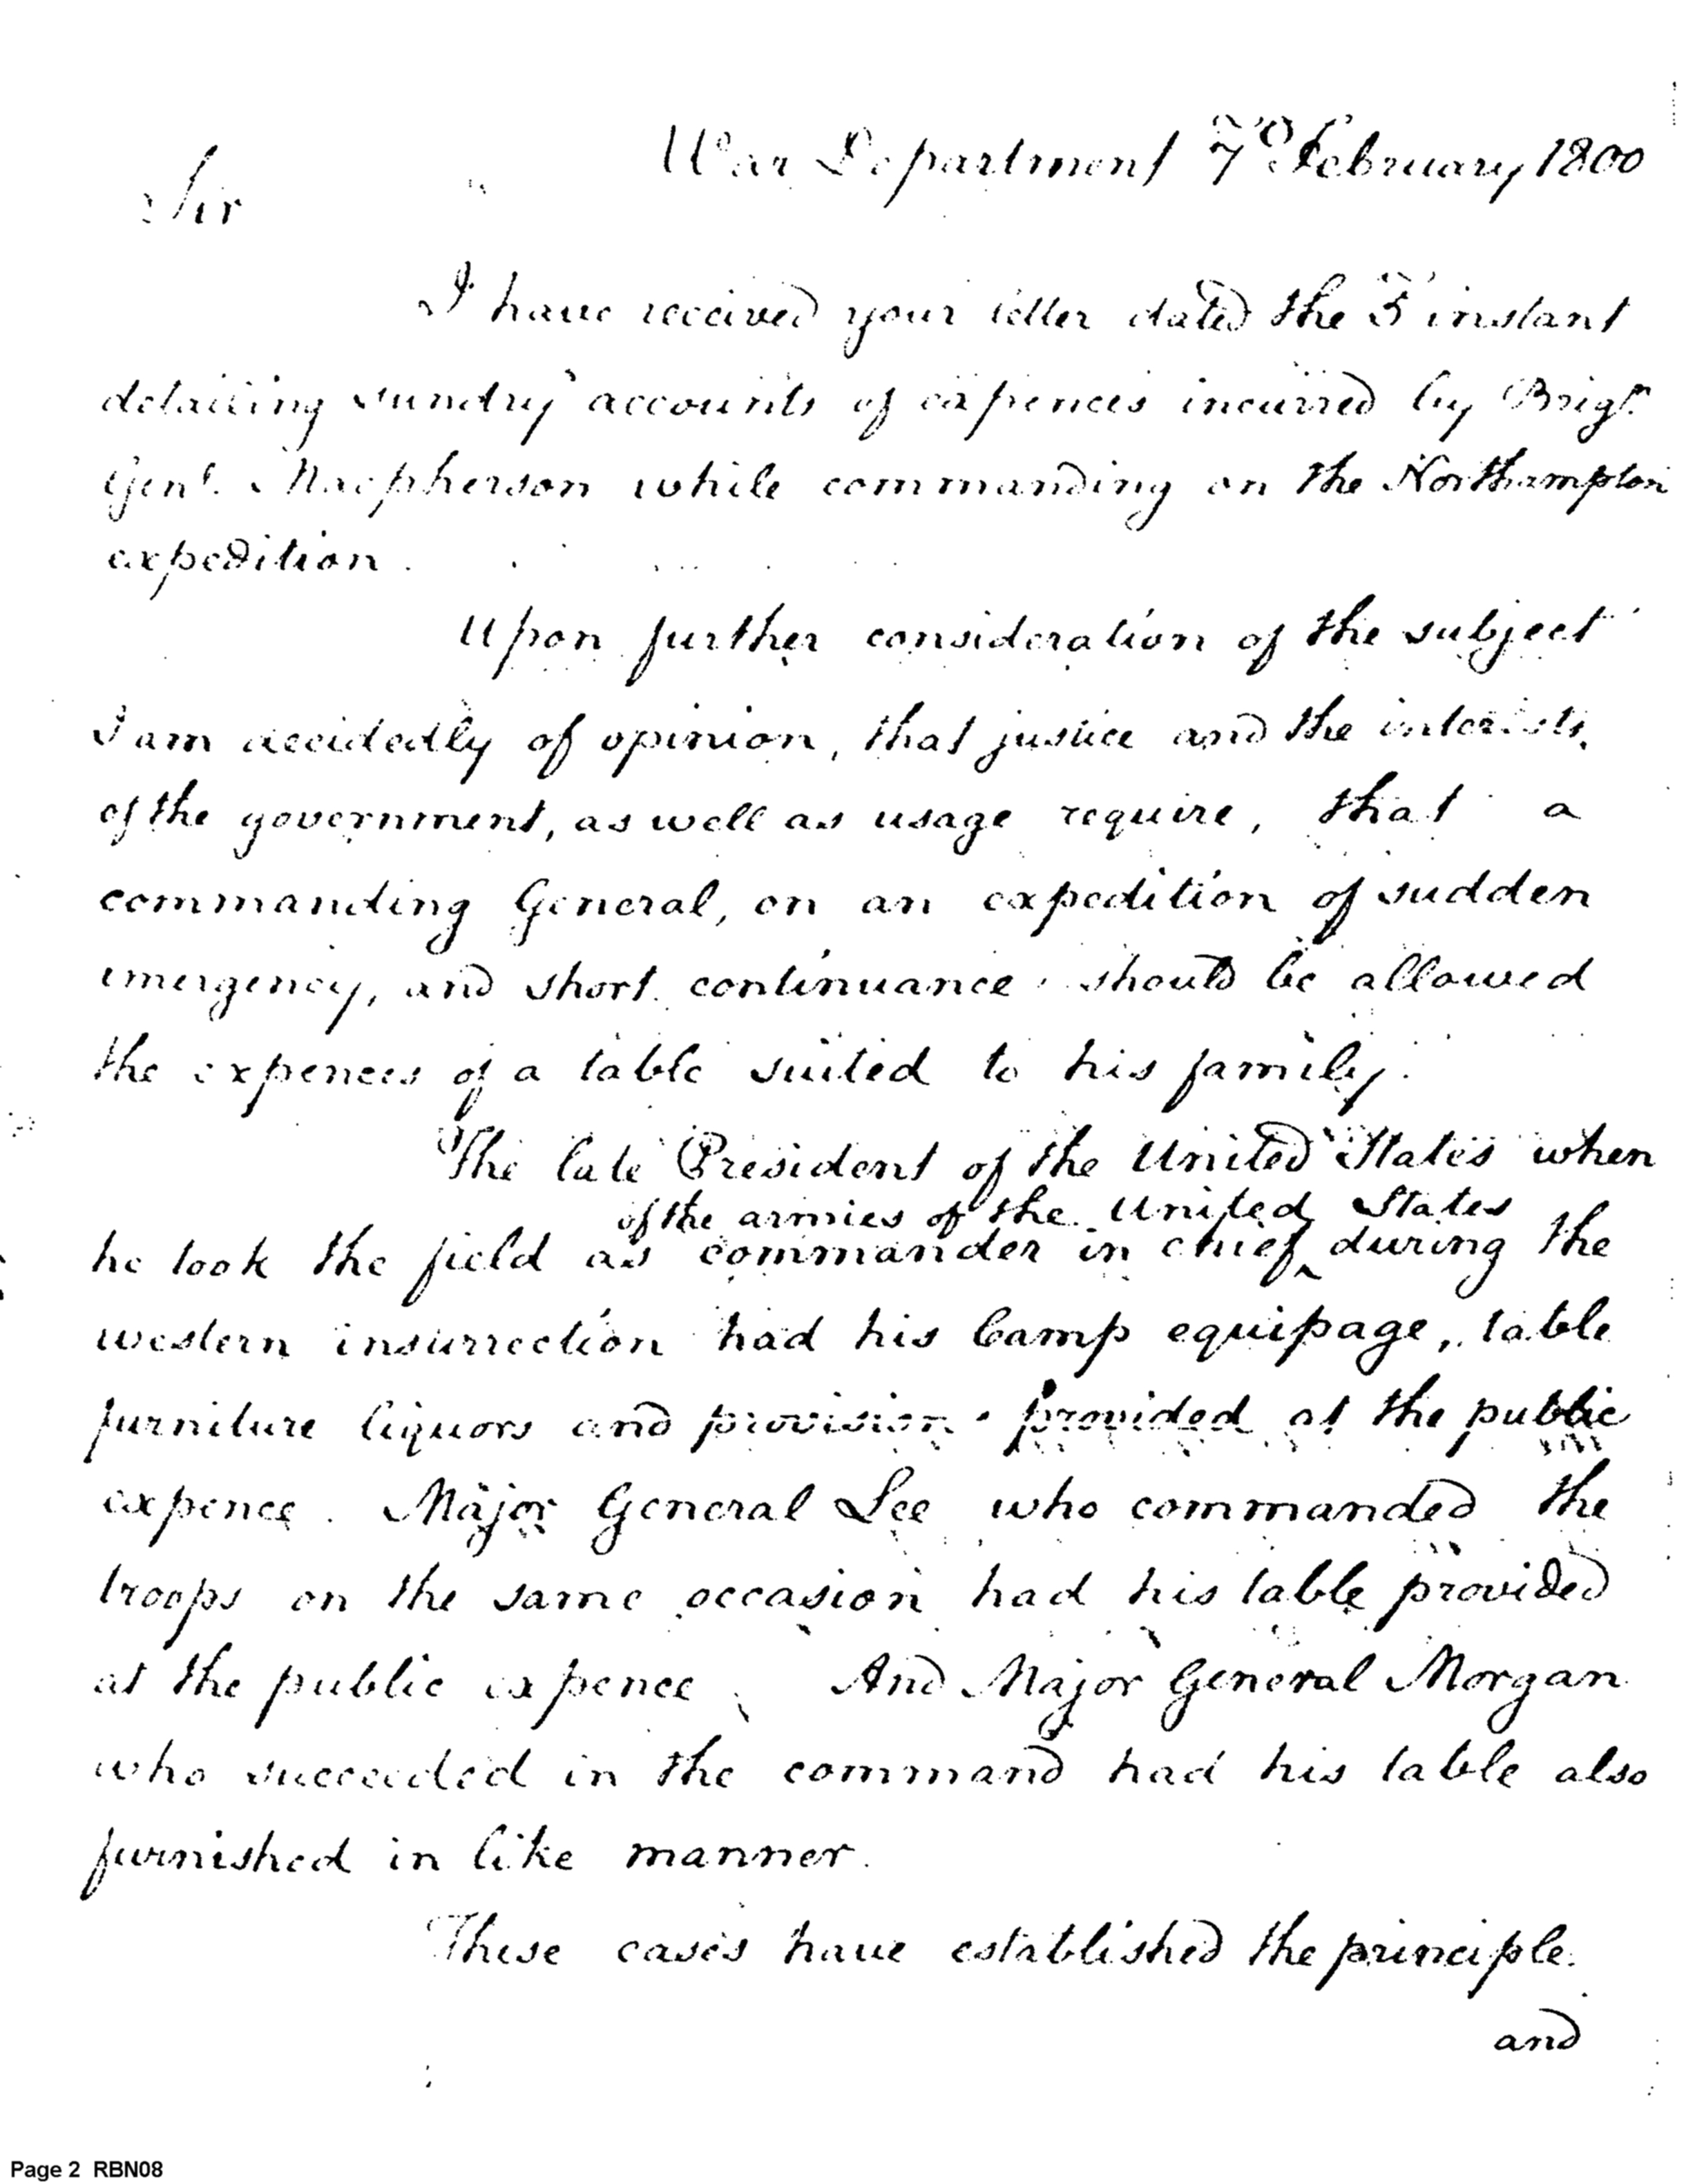 War Department 7th February 1800
Sir
I have received your letter dated the 5 instant
detailing sundry accounts of expences incurred by Brigr.
Genl. Macpherson while commanding on the Northampton
expedition.
Upon further consideration of the subject
I am decidedly of opinion, that justice and the interests
of the government, as well as usage require, that a
commanding General, on an expedition of sudden
emergency, and short continuance should be allowed
the expences of a table suited to his family.
The late President of the United States when
of the armies of the United States
he took the field as commander in chief ‸ during the
western insurrection had his Camp equipage, table
furniture liquors and provisions provided at the public
expence. Major General Lee who commanded the
troops on the same occasion had his table provided
at the public expence. And Major General Morgan
who succeeded in the command had his table also
furnished in like manner.
These cases have established the principle.
and
Page 2 RBN08